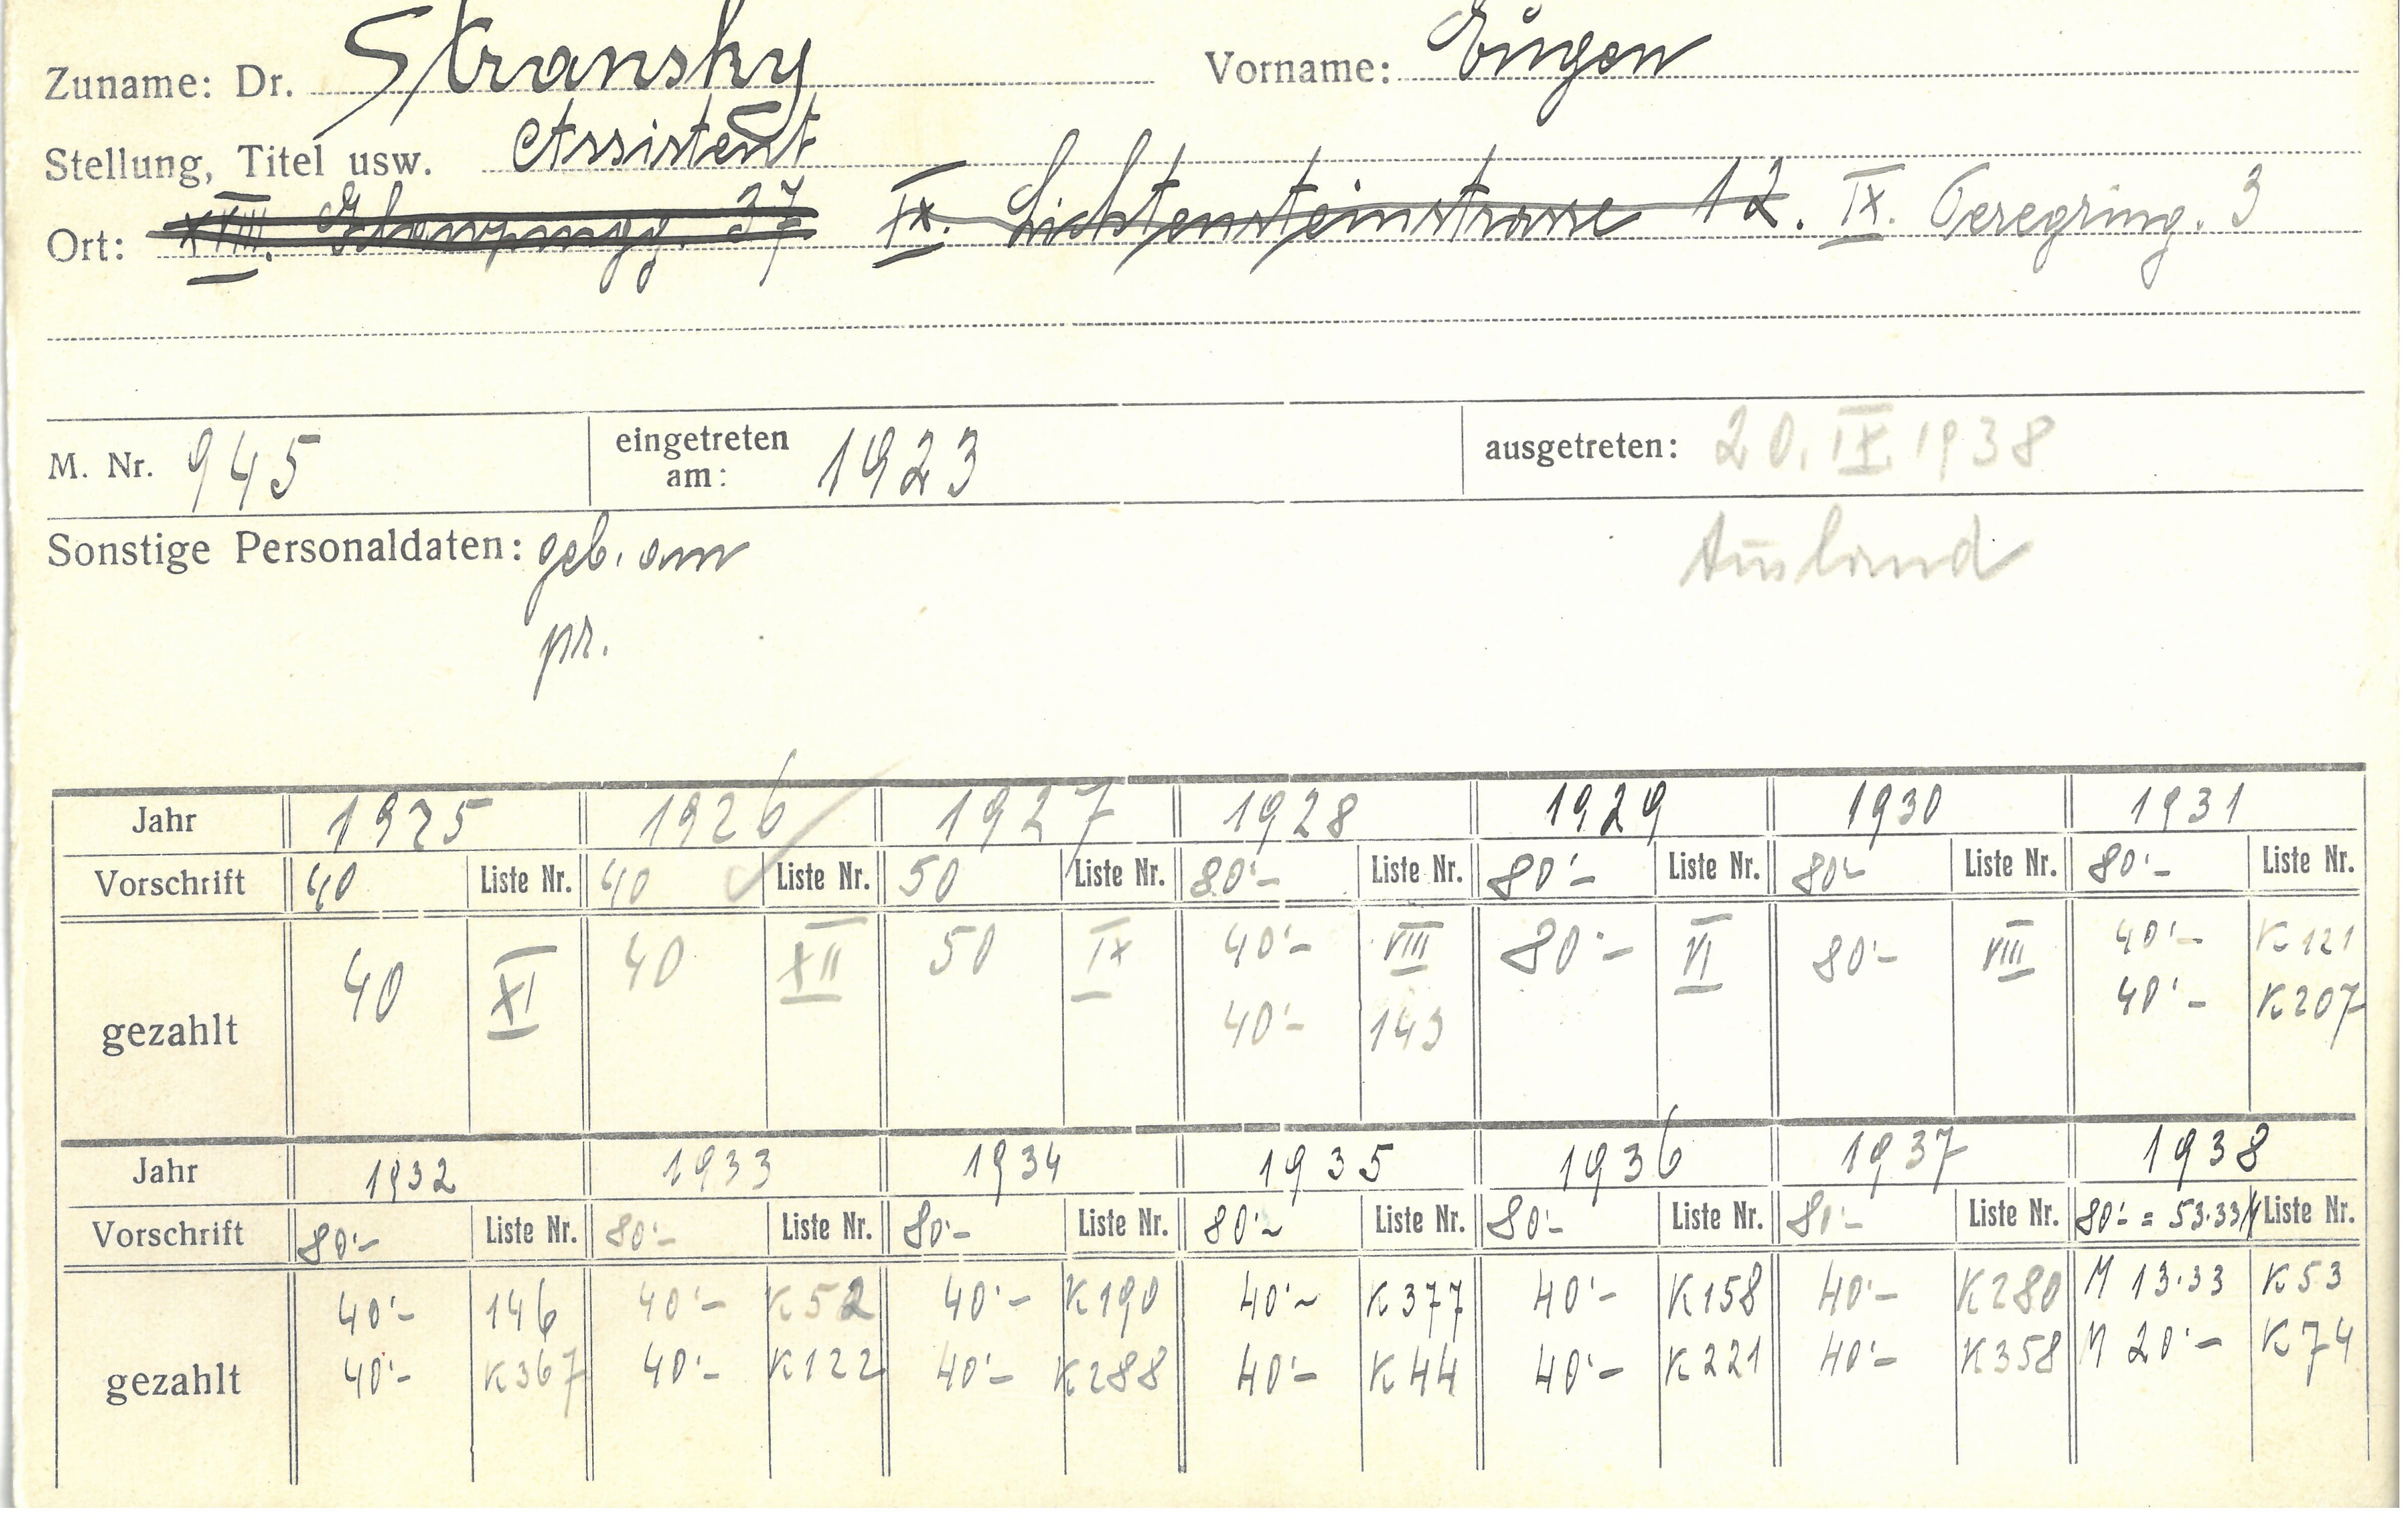 Zuname: Dr. Stransky Vorname: Eugen
Stellung, Titel usw. Assistent
Ort: XVIII. 37 IX. Lichtensteinstrasse 12. IX. Peregring. 3
M. Nr. 945 eingetreten am: 1923 ausgetreten: 20. IX. 1938
Sonstige Personaldaten: geb. am Ausland
pr.
Jahr 1925 1926 1927 1928 1929 1930 1931
Vorschrift 40 Liste Nr. 40 Liste Nr. 50 Liste Nr. 80'- Liste Nr. 80'- Liste Nr. 80'- Liste Nr. 80'- Liste Nr.
gezahlt 40 XI 40 XII 50 IX 40'- VIII 80'- VI 80'- VIII 40'- K 121
40'- 143 40'- K 207
Jahr 1932 1933 1934 1935 1936 1937 1938
Vorschrift 80'- Liste Nr. 80'- Liste Nr. 80'- Liste Nr. 80'- Liste Nr. 80'- Liste Nr. 80'- Liste Nr. 80'- = 53.33 M Liste Nr.
gezahlt 40'- 146 40'- K 52 40'- K 190 40'- K 377 40'- K 158 40'- K 280 M 13.33 K 53
40'- K 367 40'- K 122 40'- K 288 40'- K 44 40'- K 221 40'- K 358 M 20'- K 74